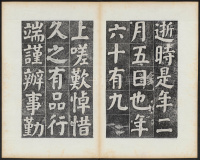 逝時是年二
月五日也年
六十有九
上嗟歎悼惜
久之有品行
端謹辦事勤